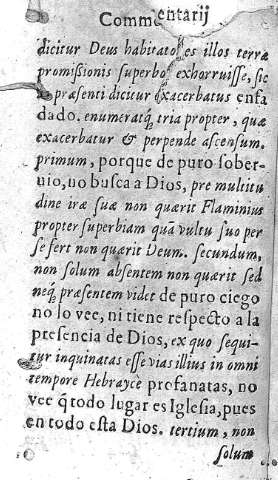 Commentarij
dicitur Deus habitatores illos terræ
promissionis superbos exhorruisse, sic
præsenti dicitur exacerbatus enfa
dado. enumeratq́ tria propter, quæ
exacerbatur & perpende ascensum.
primum, porque de puro sober-
uio, no busca a Dios, pre multitu
dine iræ suæ non quærit Flaminius
propter superbiam quã vultu suo per
se fert non quærit Deum. secundum,
non solum absentem non quærit sed
neq́ præsentem videt de puro ciego
no lo vee, ni tiene respecto a la
presencia de Dios, ex quo sequi-
tur inquinatas esse vias illius in omni
tempore Hebrayce profanatas, no
vee q̃ todo lugar es Iglesia, pues
en todo esta Dios. tertium, non
solum